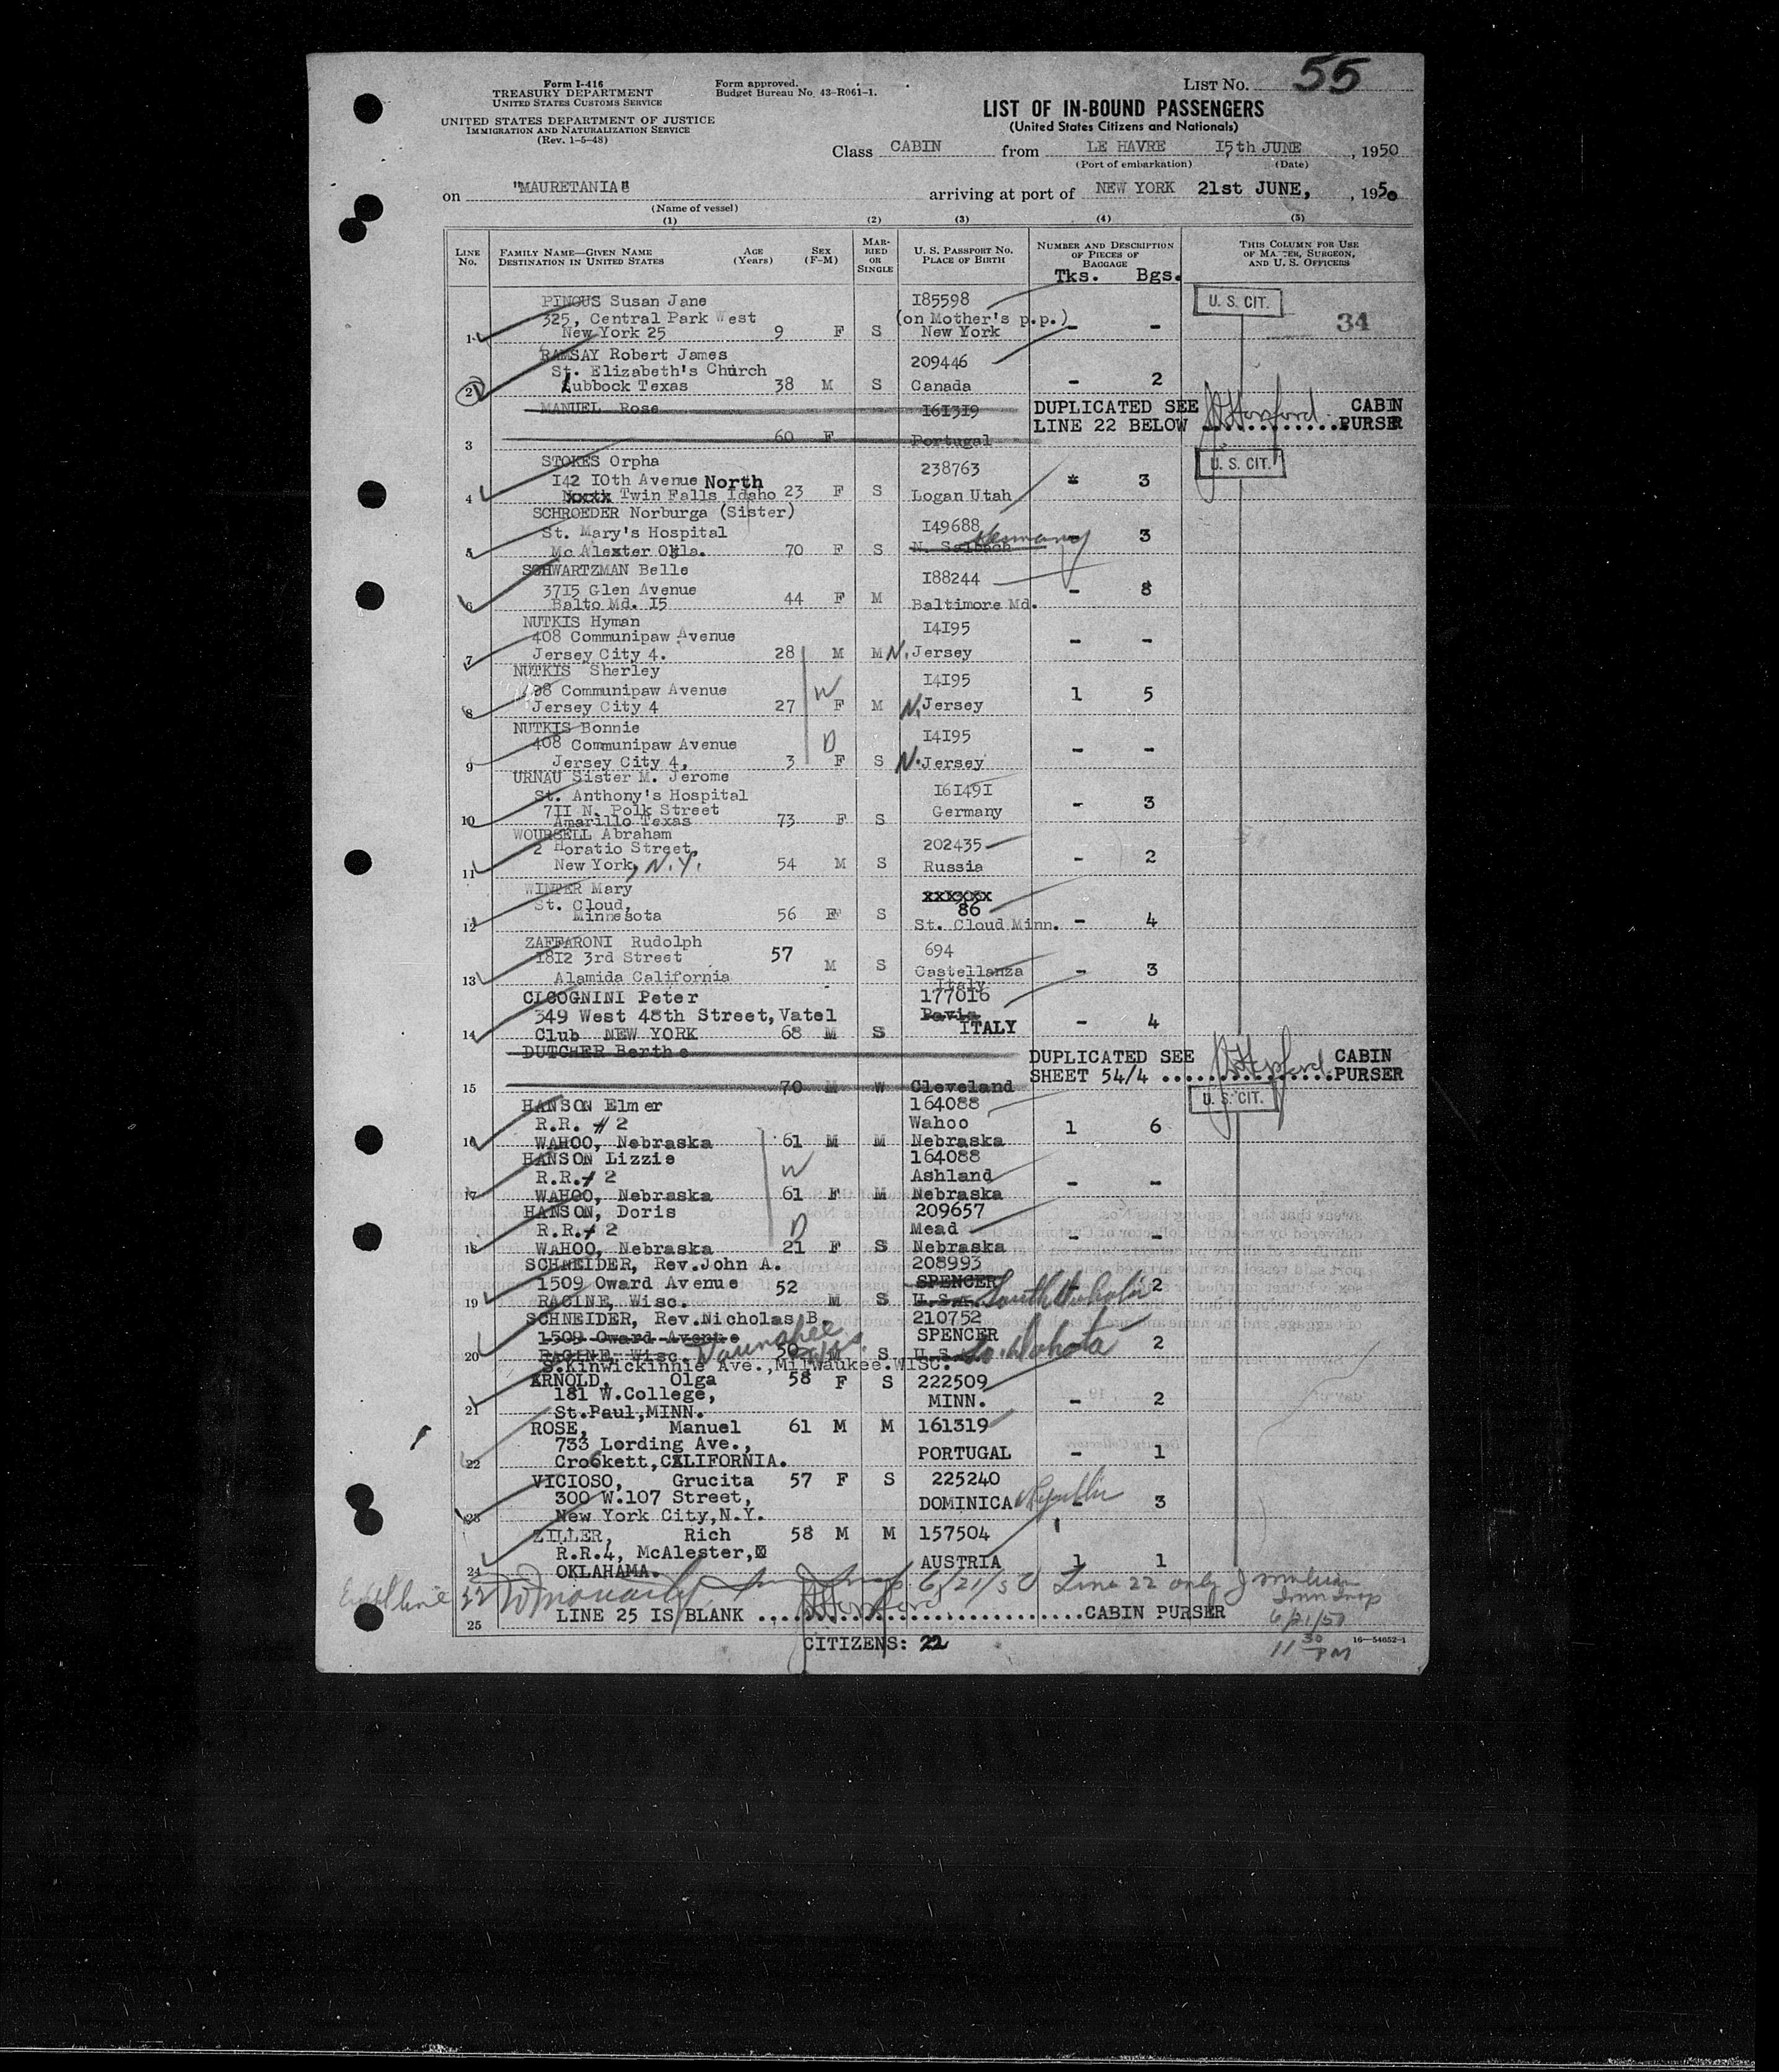 Form I-416
TREASURY DEPARTMENT
UNITED STATES CUSTOMS SERVICE
UNITED STATES DEPARTMENT OF JUSTICE
IMMIGRATION AND NATURALIZATION SERVICE
(Rev. 1-5-48)
Form approved.
Budget Bureau No. 43-R061-1.
LIST NO. 55
LIST OF IN-BOUND PASSENGERS
(United States Citizens and Nationals)
Class CABIN from LE HAVRE 15th JUNE, 1950
(Port of embarkation) (Date)
on "MAURETANIA" arriving at port of NEW YORK 21st JUNE, , 1950
(Name of vessel)
(1) (2) (3) (4) (5)
LINE No. FAMILY NAME—GIVEN NAME DESTINATION IN UNITED STATES AGE (Years) SEX (F-M) MARRIED OR SINGLE U. S. PASSPORT NO. PLACE OF BIRTH NUMBER AND DESCRIPTION OF PIECES OF BAGGAGE THIS COLUMN FOR USE OF MASTER, SURGEON, AND U. S. OFFICERS
Tks. Bgs.
PINOUS Susan Jane I85598 U. S. CIT.
325, Central Park West (on Mother's p.p.) 34
1 New York 25 9 F S New York - -
RAMSAY Robert James 209446
St. Elizabeth's Church
2 Lubbock Texas 38 M S Canada - 2
MANUEL Rose 161319 DUPLICATED SEE CABIN
LINE 22 BELOW PURSER
3 60 F Portugal
STOKES Orpha 238763 U. S. CIT.
I42 IOth Avenue North * 3
4 xxxx Twin Falls Idaho 23 F S Logan Utah
SCHROEDER Norburga (Sister) I49688
St. Mary's Hospital Germany 3
5 Mc Alexter Okla. 70 F S
SCHWARTZMAN Belle I88244
37I5 Glen Avenue - 8
6 Balto Md. I5 44 F M Baltimore Md.
NUTKIS Hyman I4I95
408 Communipaw Avenue - -
7 Jersey City 4. 28 M M N. Jersey
NUTKIS Sherley I4I95
08 Communipaw Avenue W 1 5
8 Jersey City 4 27 F M N. Jersey
NUTKIS Bonnie I4I95
408 Communipaw Avenue D - -
9 Jersey City 4, 3 F S N. Jersey
URNAU Sister M. Jerome I6I49I
St. Anthony's Hospital - 3
7II N. Polk Street Germany
10 Amarillo Texas 73 F S
WOURSELL Abraham 202435
2 Horatio Street - 2
11 New York, N.Y. 54 M S Russia
WINTER Mary xxxxxx
St. Cloud, 86
12 Minnesota 56 F S St. Cloud Minn. - 4
ZAFFARONI Rudolph 694
I8I2 3rd Street 57 M S Castellanza - 3
13 Alamida California Italy
CICOGNINI Peter 177016
349 West 48th Street, Vatel Pavia - 4
14 Club NEW YORK 68 M S ITALY
DUTCHER Berthe DUPLICATED SEE CABIN
SHEET 54/4 PURSER
15 70 M W Cleveland
HANSON Elmer 164088 U. S. CIT.
R.R. # 2 Wahoo 1 6
16 WAHOO, Nebraska 61 M M Nebraska
HANSON Lizzie 164088
R.R.# 2 W Ashland - -
17 WAHOO, Nebraska 61 F M Nebraska
HANSON, Doris 209657
R.R.# 2 D Mead - -
18 WAHOO, Nebraska 21 F S Nebraska
SCHNEIDER, Rev.John A. 208993
1509 Oward Avenue 52 SPENCER 2
19 RACINE, Wisc. M S U.S.A. South Dakota
SCHNEIDER, Rev.Nicholas B. 210752
1509 Oward Avenue SPENCER 2
20 RACINE, Wisc. 50 M S U.S.A. So. Dakota
S.Kinwickinnie Ave.,Milwaukee.WISC.
ARNOLD, Olga 58 F S 222509
181 W.College, MINN. - 2
21 St.Paul,MINN.
ROSE, Manuel 61 M M 161319
733 Lording Ave., PORTUGAL - 1
22 Crockett,CALIFORNIA.
VICIOSO, Grucita 57 F S 225240
300 W.107 Street, DOMINICA Republic - 3
23 New York City,N.Y.
ZILLER, Rich 58 M M 157504
R.R.4, McAlester, AUSTRIA 1 1
24 OKLAHOMA.
22 6/21/50 Line 22 only
LINE 25 IS BLANK CABIN PURSER
25
6/21/50
11 30 PM
CITIZENS: 22
16—54652-1